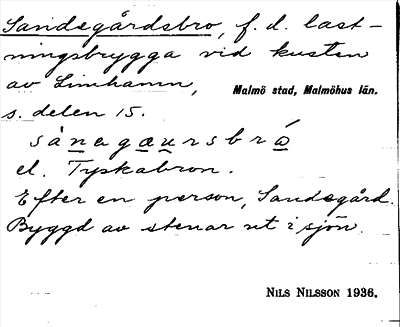 Sandegårdsbro, f. d. last-
ningsbrygga vid kusten
av Limhamn, Malmö stad, Malmöhus län.
s. delen 15.
sànegæursbrá̱
el. Tyskabron.
Efter en person, Sandegård.
Byggd av stenar ut i sjön.
NILS NILSSON 1936.